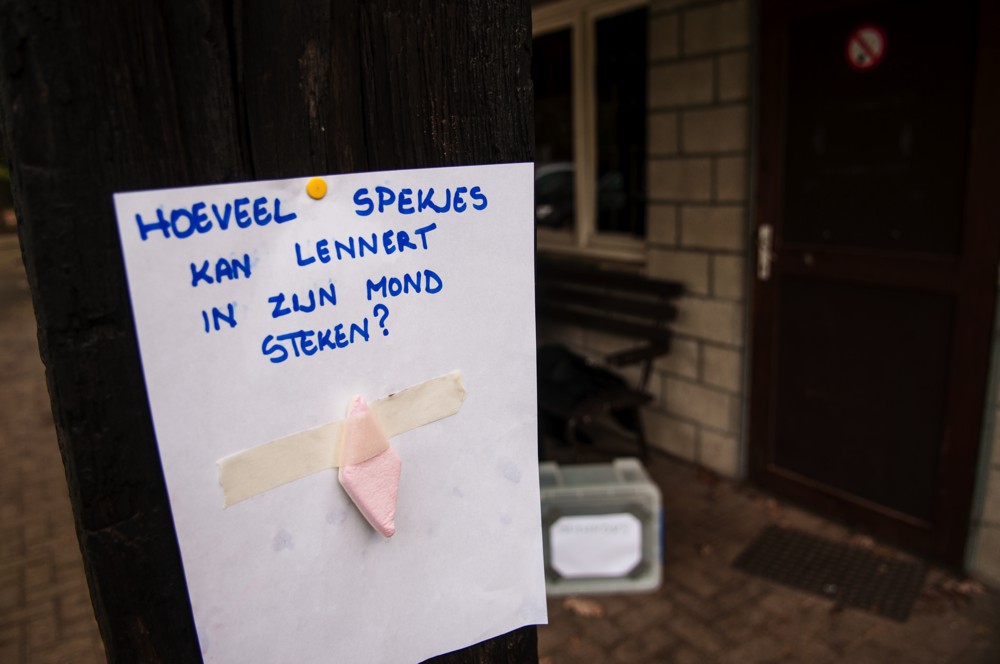 HOEVEEL SPEKJES
KAN LENNERT
IN ZIJN MOND
STEKEN?